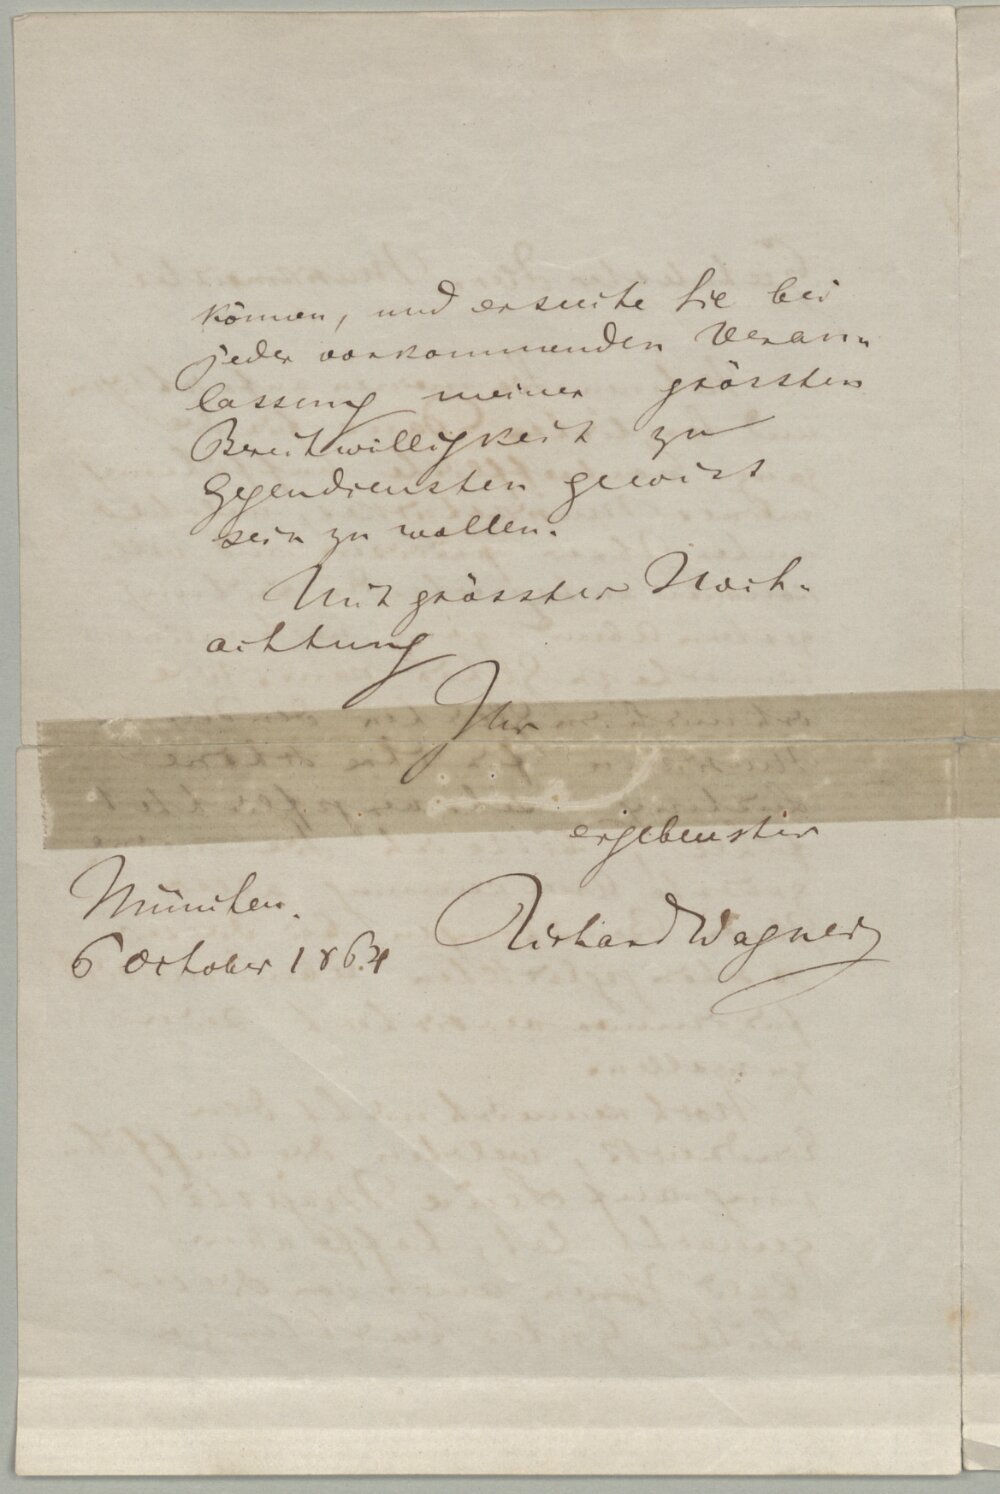 können, und ersuche Sie bei
jeder vorkommenden Veran-
lassung meiner grössten
Bereitwilligkeit zu
Gegendiensten gewiss
sein zu wollen.
Mit grösster Hoch-
achtung
Ihr
ergebenster
München.
6 October 1864
Richard Wagner